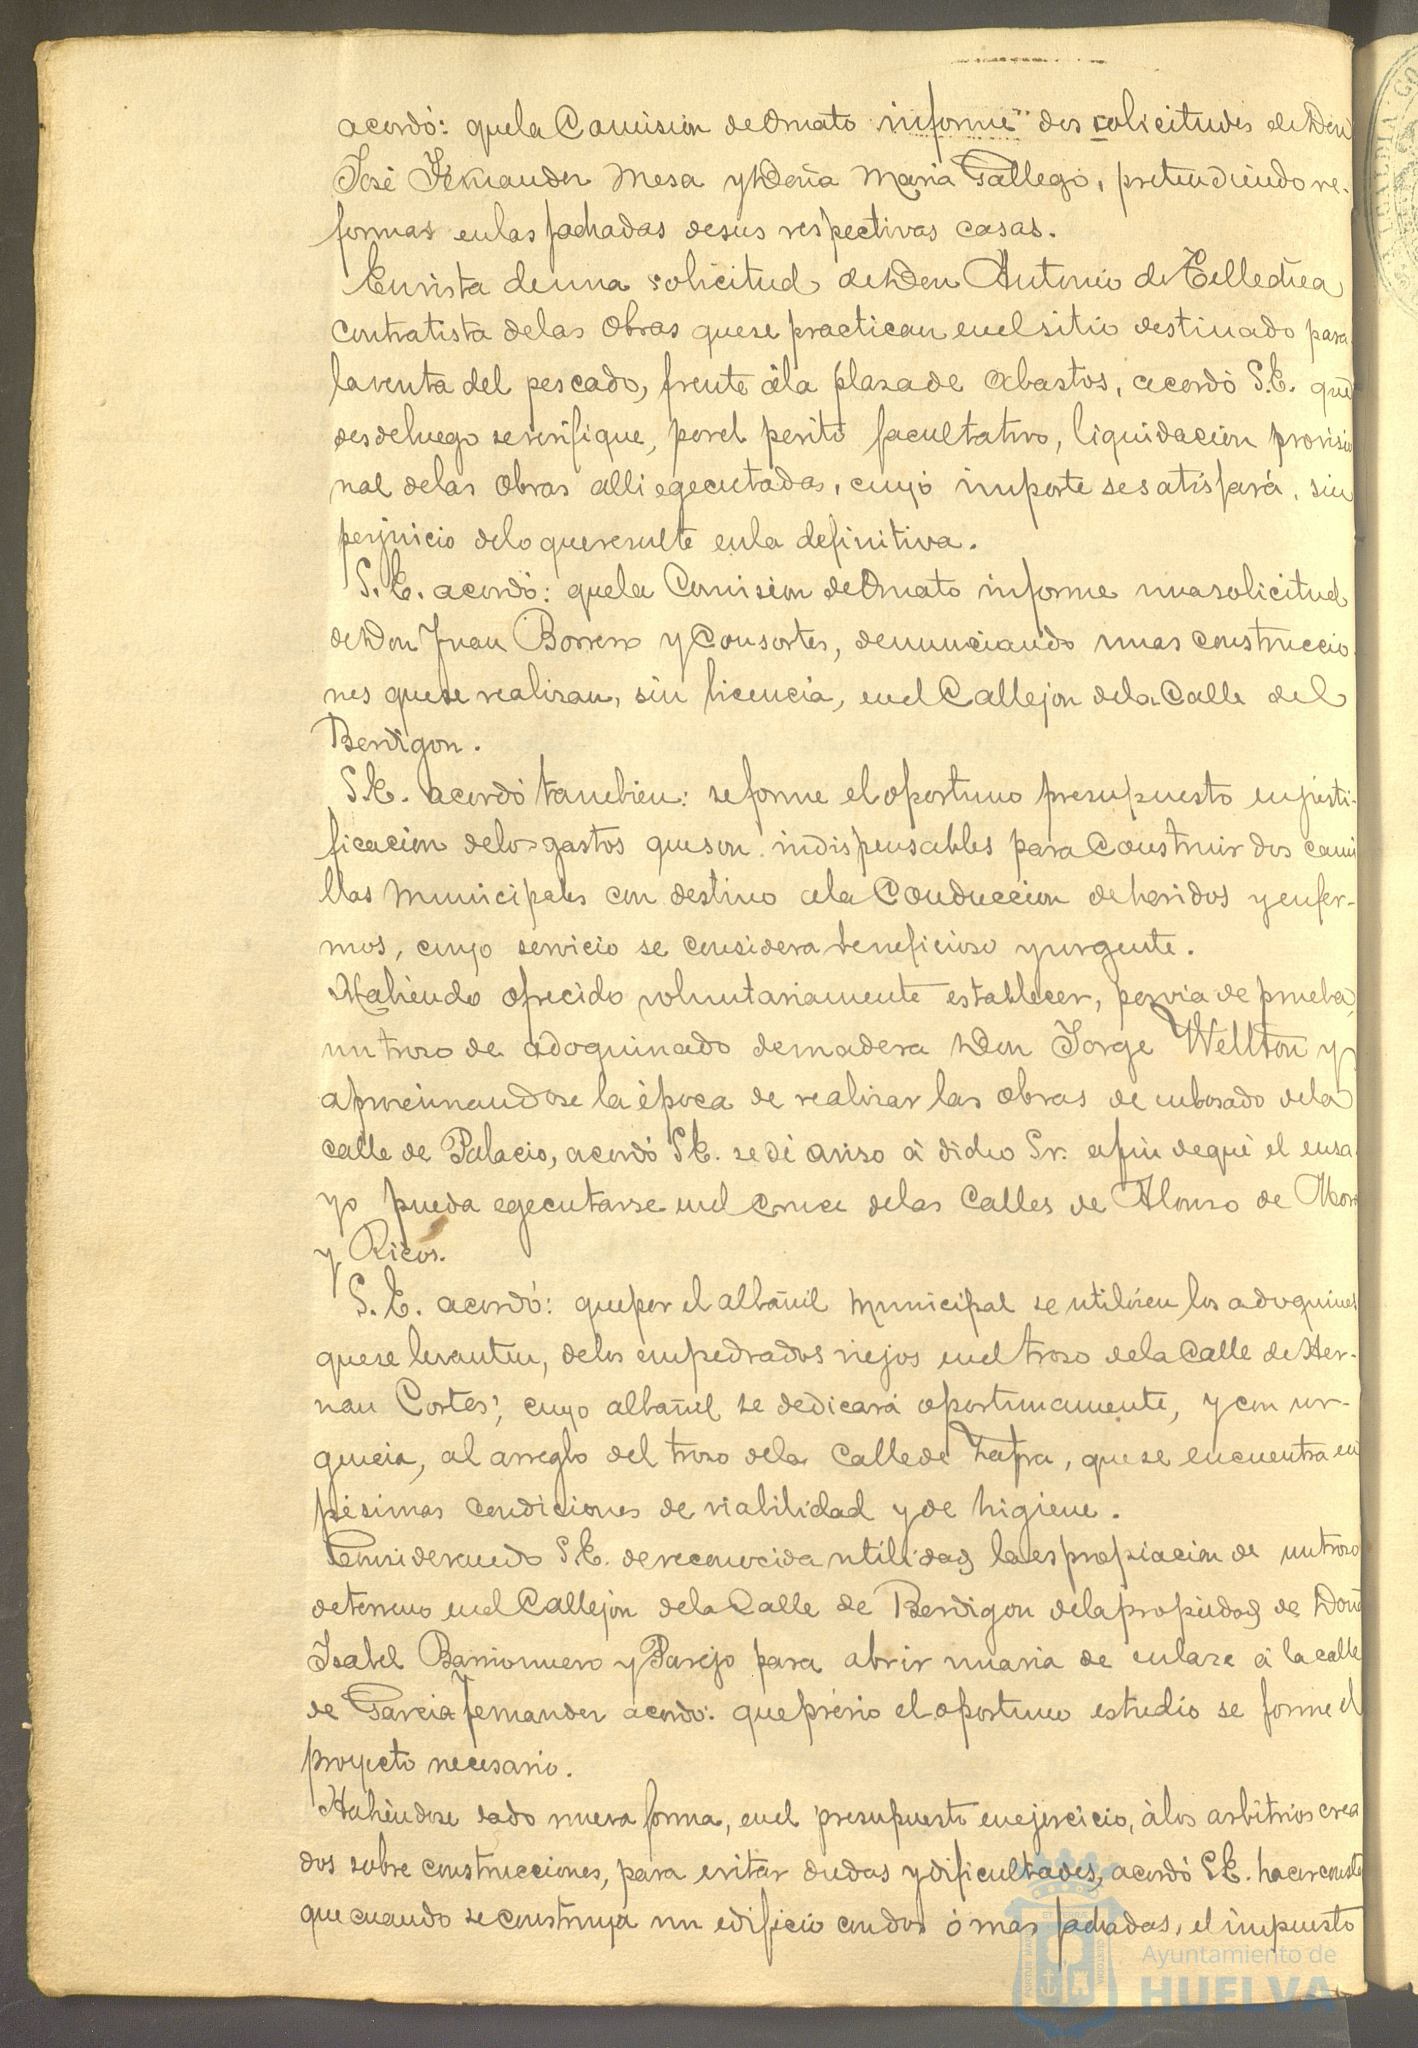 acordó: que la Comision de Ornato informe dos solicitudes de Don
José Fernandez Mesa y Doña Maria Gallego, pretendiendo re-
formas en las fachadas de sus respectivas casas.
En vista de una solicitud de Don Antonio de Tellechea
contratista de las obras que se practican en el sitio destinado para
la venta del pescado, frente á la plaza de Abastos, acordó S.E. que
desde luego se verifique, por el perito facultativo, liquidacion provisio
nal de las obras alli egecutadas, cuyo importe se satisfará, sin
perjuicio de lo que resulte en la definitiva.
S.E. acordó: que la Comision de Ornato informe una solicitud
de Don Juan Borrero y Consortes, denunciando unas construccio
nes que se realizan, sin licencia, en el Callejon de la Calle del
Berdigon.
S.E. acordó tambien: se forme el oportuno presupuesto en justi-
ficacion de los gastos que son indispensables para construir dos cami
llas Municipales con destino á la Conduccion de heridos y enfer-
mos, cuyo servicio se considera beneficioso y urgente.
Habiendo ofrecido voluntariamente establecer, por via de prueba,
un trozo de adoquinado de madera Don Jorge Wellton y
aproximandose la época de realizar las obras de enlosado de la
calle de Palacio, acordó S.E. se dé aviso á dicho Sr. á fin de que el ensa
yo pueda egecutarse en el cruce de las Calles de Alonso de Mora
y Ricos.
S.E. acordó: que por el albañil Municipal se utilicen los adoquines
que se levanten, de los empedrados viejos en el trozo de la Calle de Her-
nan Cortes, cuyo albañil se dedicará oportunamente, y con ur-
gencia, al arreglo del trozo de la Calle de Zafra, que se encuentra en
pésimas condiciones de viabilidad y de higiene.
Considerando S.E. de reconocida utilidad la espropiacion de un trozo
de terreno en el Callejon de la Calle de Berdigon de la propiedad de Doña
Isabel Barrionuevo y Parejo para abrir una via de enlaze á la calle
de Garcia Fernandez acordó: que prévio el oportuno estudio se forme el
proyecto necesario.
Habiendose dado nueva forma, en el presupuesto en ejercicio, á los arbitrios crea
dos sobre construcciones, para evitar dudas y dificultades, acordó S.E. hacer constar
que cuando se construya un edificio con dos ó mas fachadas, el impuesto
Ayuntamiento de
HUELVA